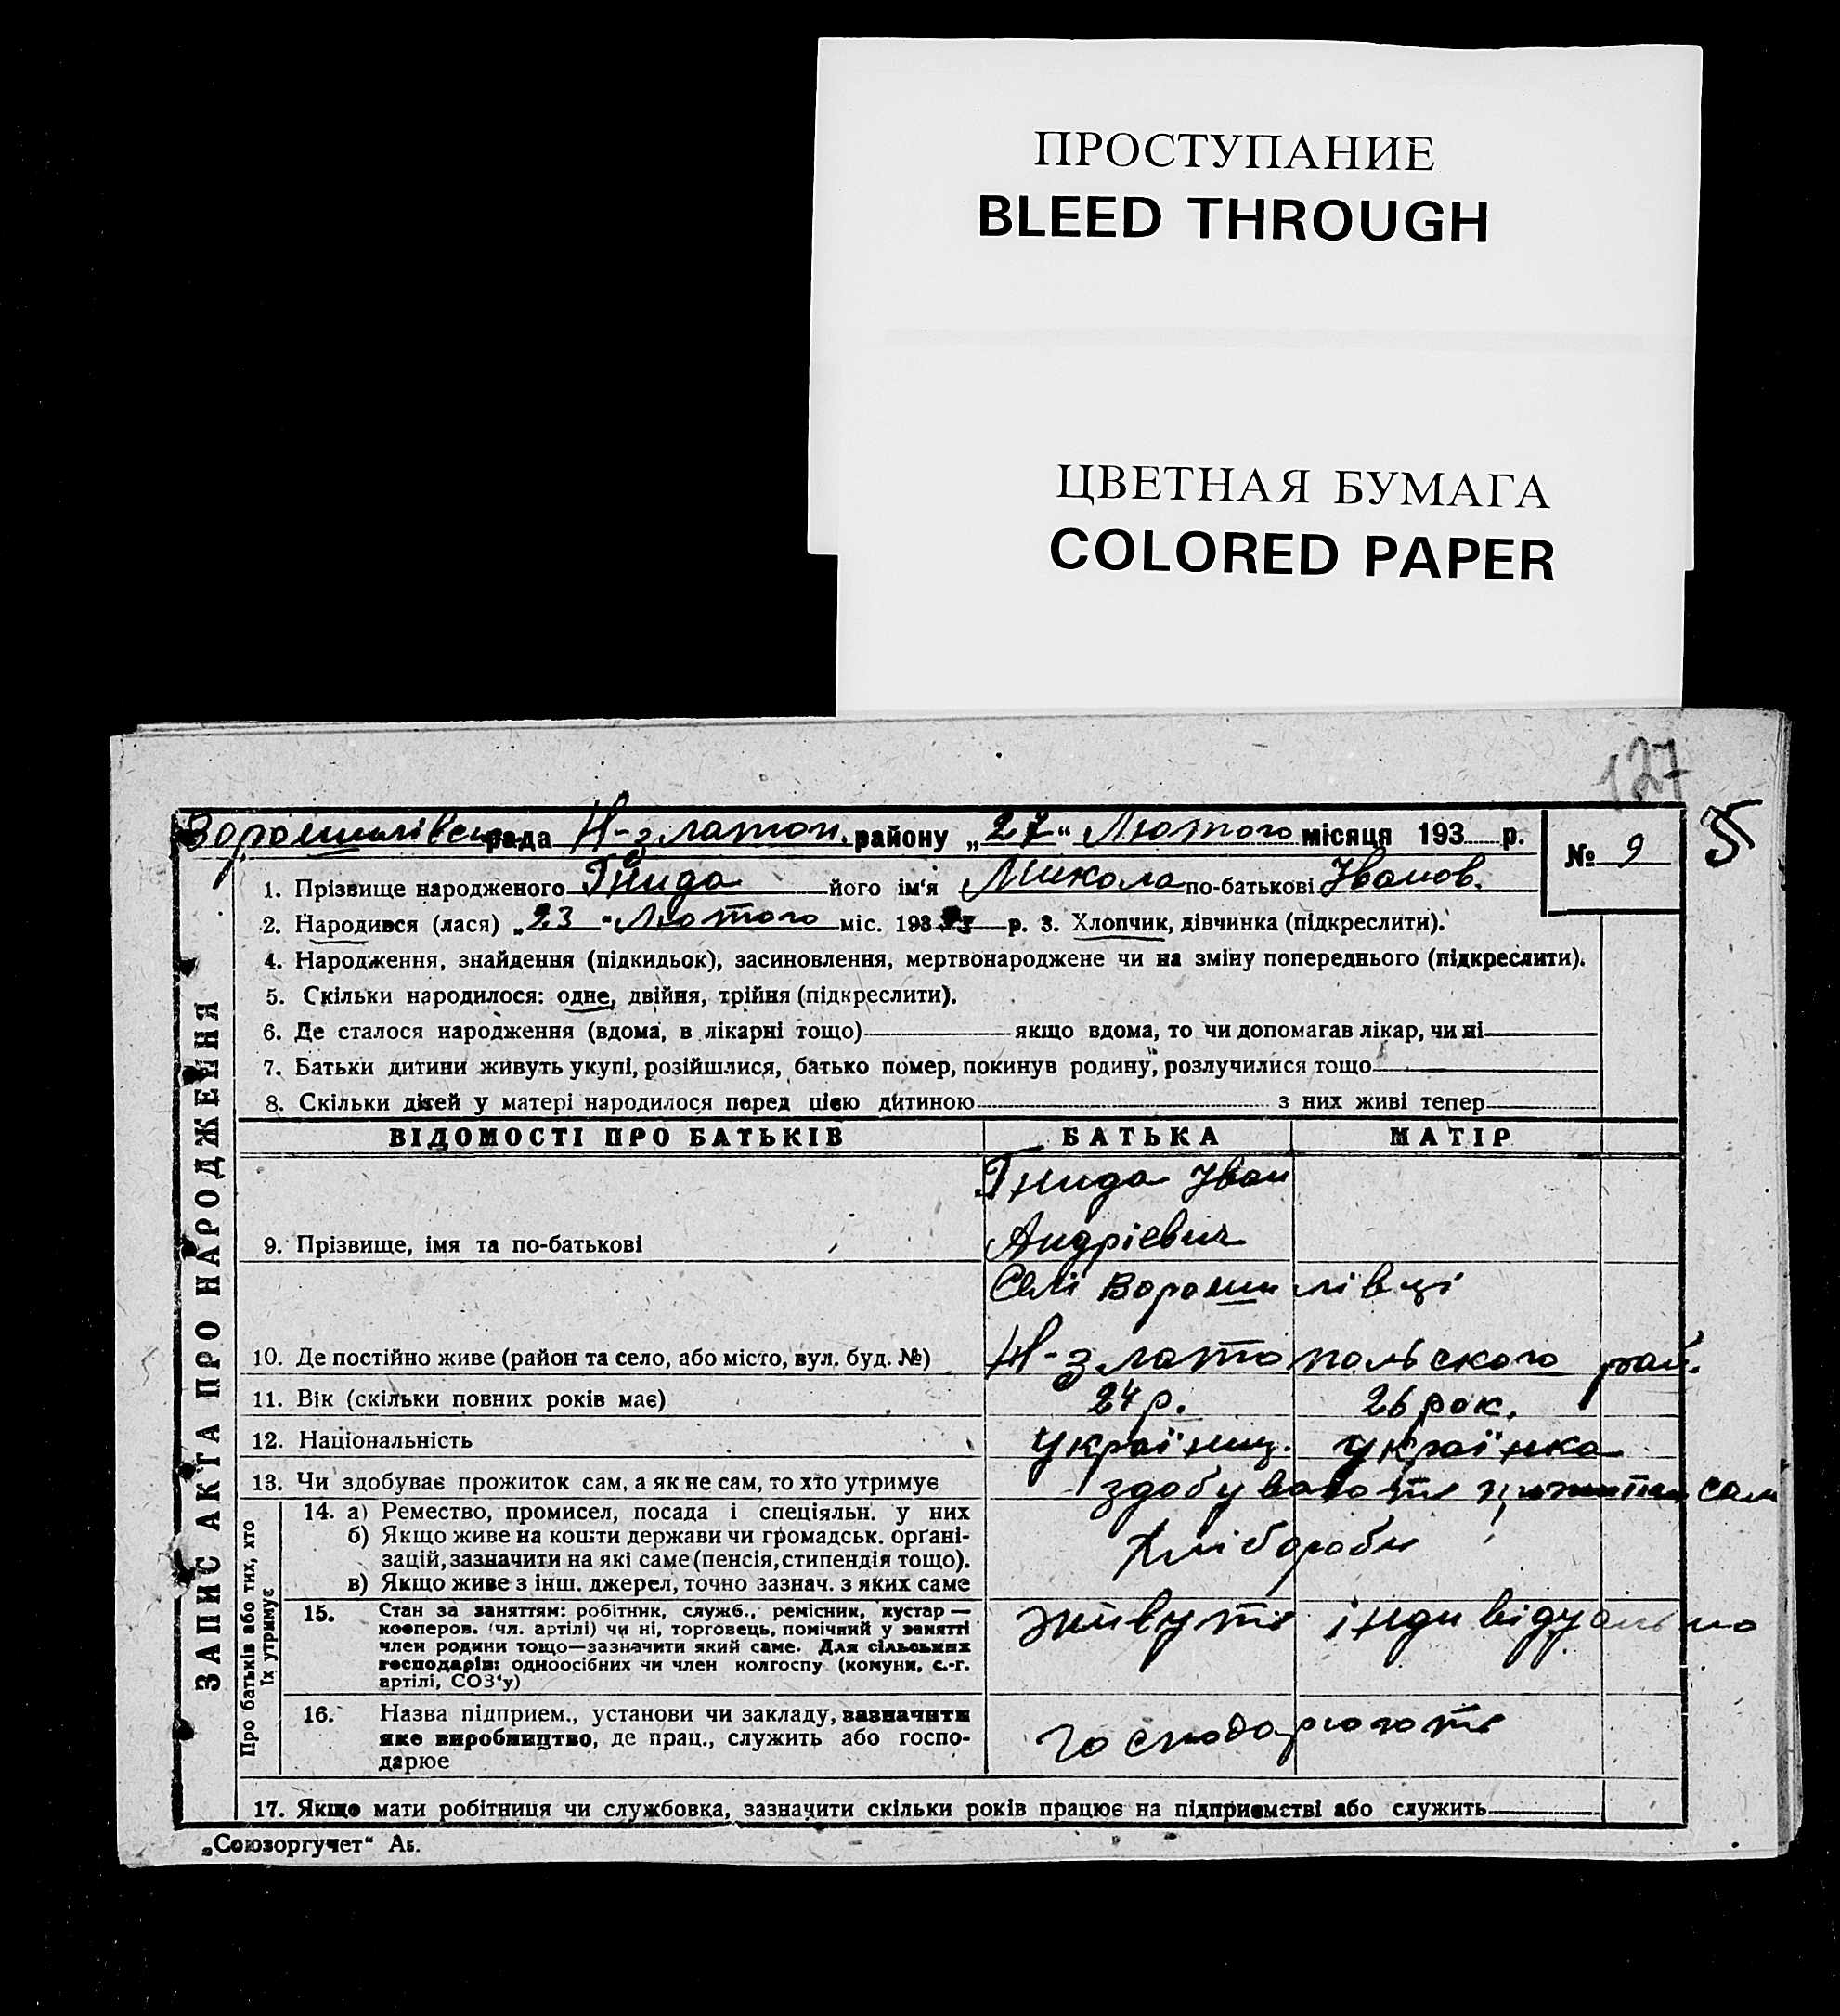 ПРОСТУПАНИЕ
BLEED THROUGH
ЦВЕТНАЯ БУМАГА
COLORED PAPER
127
рада Н-златоп. району „27“ Лютого місяця 193 р.
№ 9
5
1. Прізвище народженого Гнида його ім'я Микола по-батькові Іванов.
2. Народився (лася) „23“ Лютого міс. 193 р. 3. Хлопчик, дівчинка (підкреслити).
4. Народження, знайдення (підкидьок), засиновлення, мертвонароджене чи на зміну попереднього (підкреслити).
5. Скільки народилося: одне, двійня, трійня (підкреслити).
6. Де сталося народження (вдома, в лікарні тощо) якщо вдома, то чи допомагав лікар, чи ні
7. Батьки дитини живуть укупі, розійшлися, батько помер, покинув родину, розлучилися тощо
8. Скільки дітей у матері народилося перед цією дитиною з них живі тепер
ВІДОМОСТІ ПРО БАТЬКІВ БАТЬКА МАТІР
Гнида Іван
9. Прізвище, імя та по-батькові Андрієвич
Селі Ворошилівці
10. Де постійно живе (район та село, або місто, вул. буд. №) Н-златопольского рай.
11. Вік (скільки повних років має) 24 р. 26 рок.
12. Національність Українц. Українка
13. Чи здобуває прожиток сам, а як не сам, то хто утримує здобувають сам
14. а) Ремество, промисел, посада і спеціяльн. у них
б) Якщо живе на кошти держави чи громадськ. орґані-
зацій, зазначити на які саме (пенсія, стипендія тощо). Хлібороби
в) Якщо живе з інш. джерел, точно зазнач. з яких саме
15. Стан за заняттям: робітник, служб., ремісник, кустар —
кооперов. (чл. артілі) чи ні, торговець, помічний у занятті живуть індивідуально
член родини тощо—зазначити який саме. Для сільських
господарів: одноосібних чи член колгоспу (комуни, с.-г.
артілі, СОЗ'у)
16. Назва підприєм., установи чи закладу, зазначити
яке виробництво, де прац., служить або госпо- господарюють
дарює
17. Якщо мати робітниця чи службовка, зазначити скільки років працює на підприємстві або служить
„Союзоргучет“ Аб.
ЗАПИС АКТА ПРО НАРОДЖЕННЯ
Про батьків або тих, хто
їх утримує